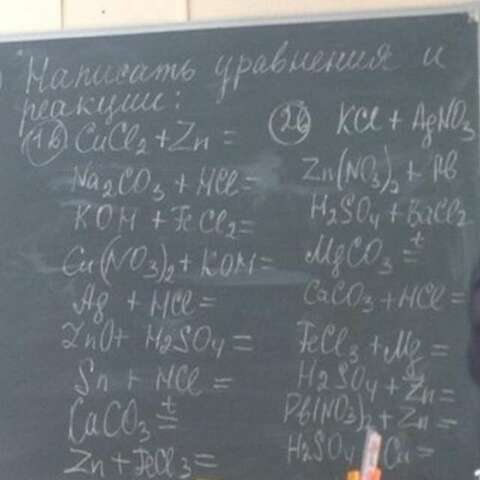 Написать уравнения и
реакции:
1в CuCl₂ + Zn =
Na₂CO₃ + HCl =
KOH + FeCl₂ =
Cu(NO₃)₂ + KOH =
Ag + HCl =
ZnO + H₂SO₄ =
Sn + HCl =
CaCO₃ t=
Zn + FeCl₃ =
2в KCl + AgNO₃
Zn(NO₃)₂ + Pb
H₂SO₄ + BaCl₂
MgCO₃ t=
CaCO₃ + HCl =
FeCl₃ + Mg =
H₂SO₄ + Zn =
Pb(NO₃)₂ + Zn =
H₂SO₄ Cu =